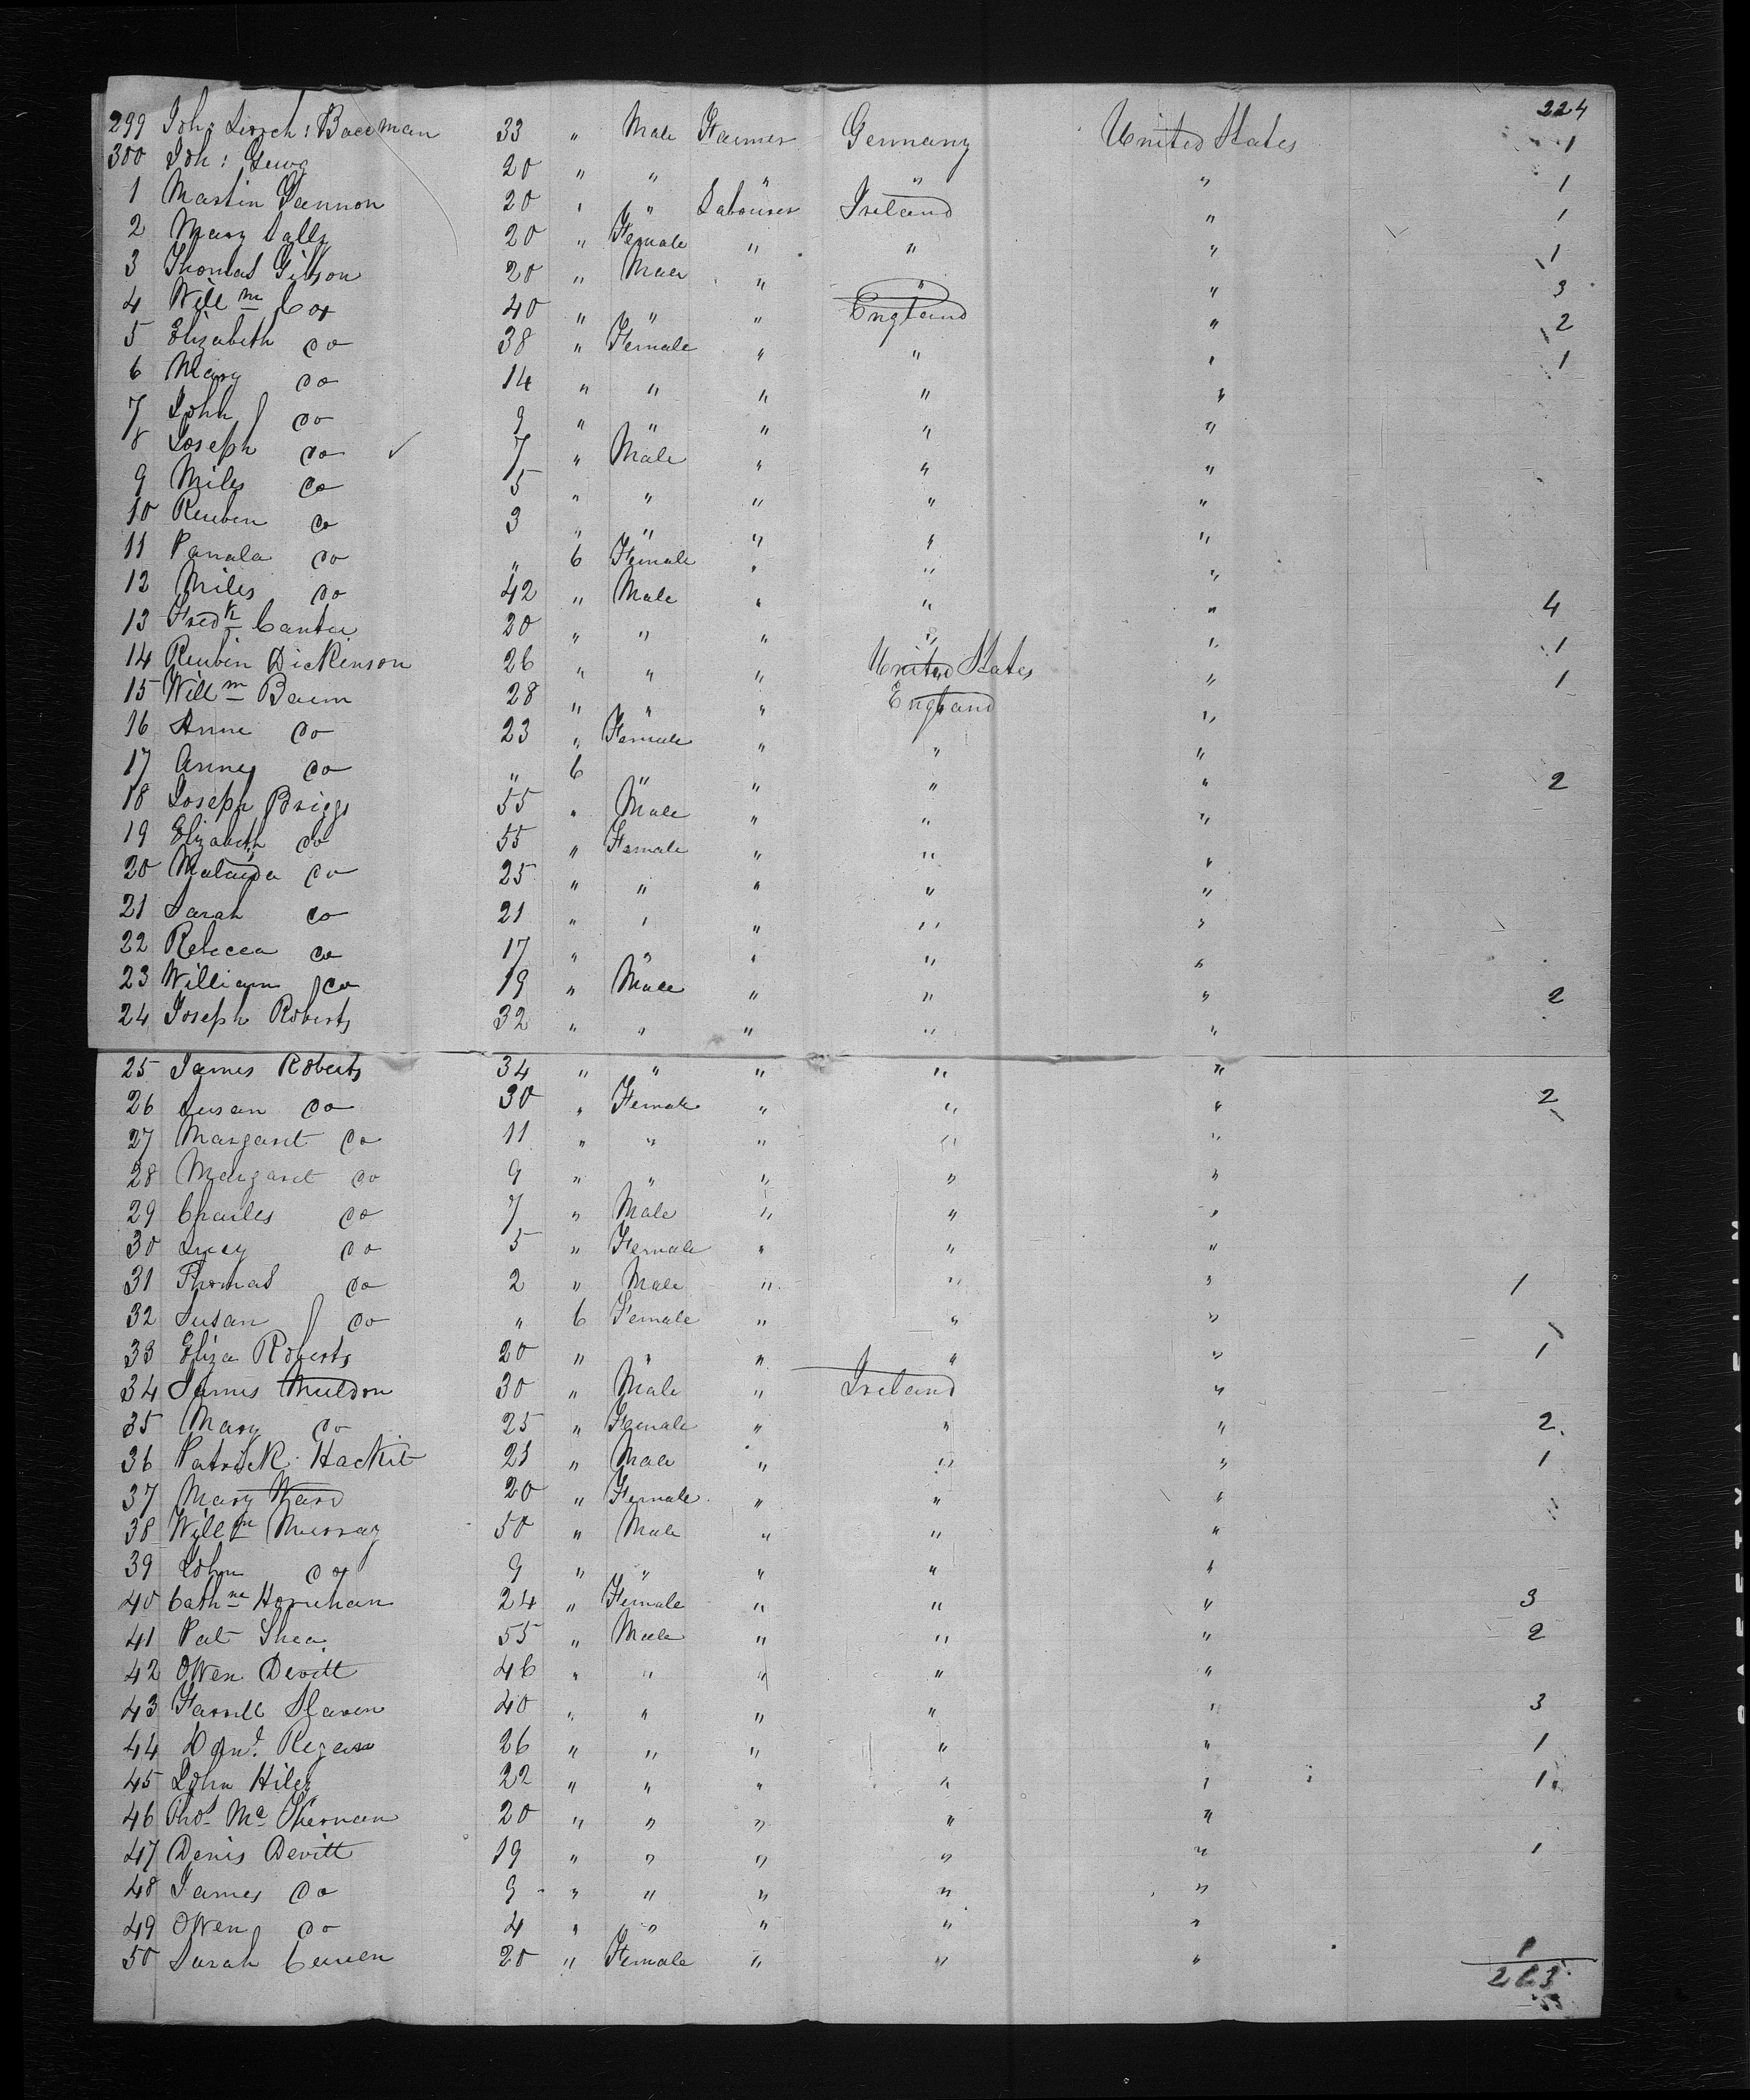 224
299 Joh: Lirsch: Baceman 33 " Male Farmer Germany United States 1
300 Joh: 20 " " " " " 1
1 Martin Gannon 20 " " Labourer Ireland " 1
2 Mary Lally 20 " Female " " " 1
3 Thomas Gibson 20 " Male " " " 3
4 Willm Cox 40 " " " England " 2
5 Elizabeth do 38 " Female " " " 1
6 Mary do 14 " " " " "
7 John do 9 " " " " "
8 Joseph do ✓ 7 " Male " " "
9 Miles do 5 " " " " "
10 Reuben do 3 " " " " "
11 Pamala do " 6 Female " " "
12 Miles do 42 " Male " " " 4
13 Fredk Canter 20 " " " " " 1
14 Reubin Dickenson 26 " " " United States " 1
15 Willm Baum 28 " " " England "
16 Anne do 23 " Female " " "
17 Anney do " 6 " " " " 2
18 Joseph Briggs 55 " Male " " "
19 Elizabeth do 55 " Female " " "
20 do 25 " " " " "
21 Sarah do 21 " " " " "
22 Rebecca do 17 " " " " "
23 William do 19 " Male " " " 2
24 Joseph Roberts 32 " " " " "
25 James Roberts 34 " " " " "
26 Susan do 30 " Female " " " 2
27 Margaret do 11 " " " " "
28 Margaret do 9 " " " " "
29 Charles do 7 " Male " " "
30 Lucy do 5 " Female " " "
31 Thomas do 2 " Male " " " 1
32 Susan do " 6 Female " " "
33 Eliza Roberts 20 " " " " " 1
34 James Muldon 30 " Male " Ireland "
35 Mary do 25 " Female " " " 2
36 Patrick Hackit 21 " Male " " " 1
37 Mary Ward 20 " Female " " "
38 Willm Murray 50 " Male " " "
39 John do 9 " " " " "
40 Cathne Hourihan 24 " Female " " " 3
41 Pat Shea 55 " Male " " " 2
42 Owen Devitt 46 " " " " "
43 Farrell Slaven 40 " " " " " 3
44 Danl Regan 26 " " " " " 1
45 John Hiley 22 " " " " " 1
46 Thos Mc Kernan 20 " " " " "
47 Denis Devitt 19 " " " " " 1
48 James do 9 " " " " "
49 Owen do 4 " " " " "
50 Sarah 20 " Female " " " 1